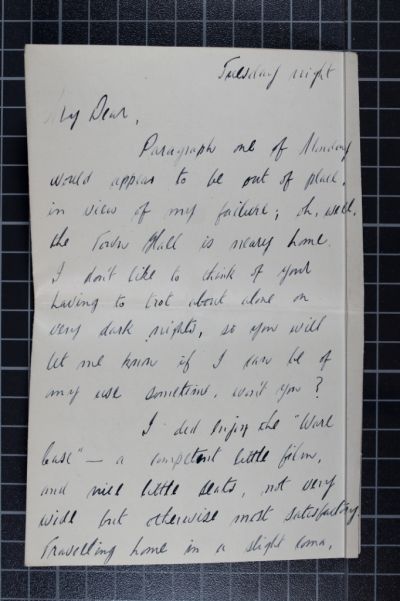 Tuesday night
My Dear,
Paragraph one of Monday
would appear to be out of place,
in view of my failure; oh, well,
the Town Hall is neary home.
I don't like to think of your
having to trot about alone on
very dark nights, so you will
let me know if I can be of
any use sometime, won't you?
I did enjoy the "Ware
Case" — a competent little film,
and nice little seats, not very
wide but otherwise most satisfactory
Travelling home in a slight coma,